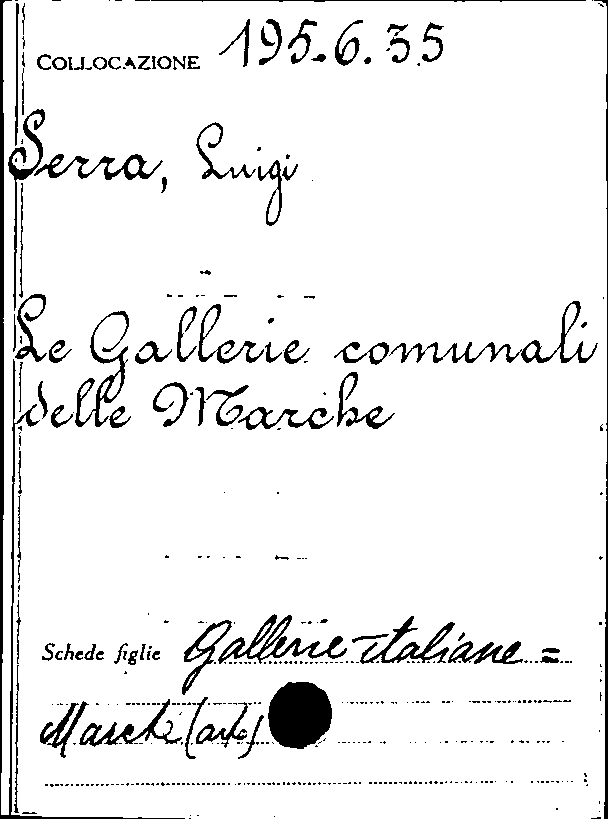 COLLOCAZIONE 195.6.35
Serra, Luigi
Le Gallerie comunali
delle Marche
Schede figlie Gallerie italiane =
Marche (arte)